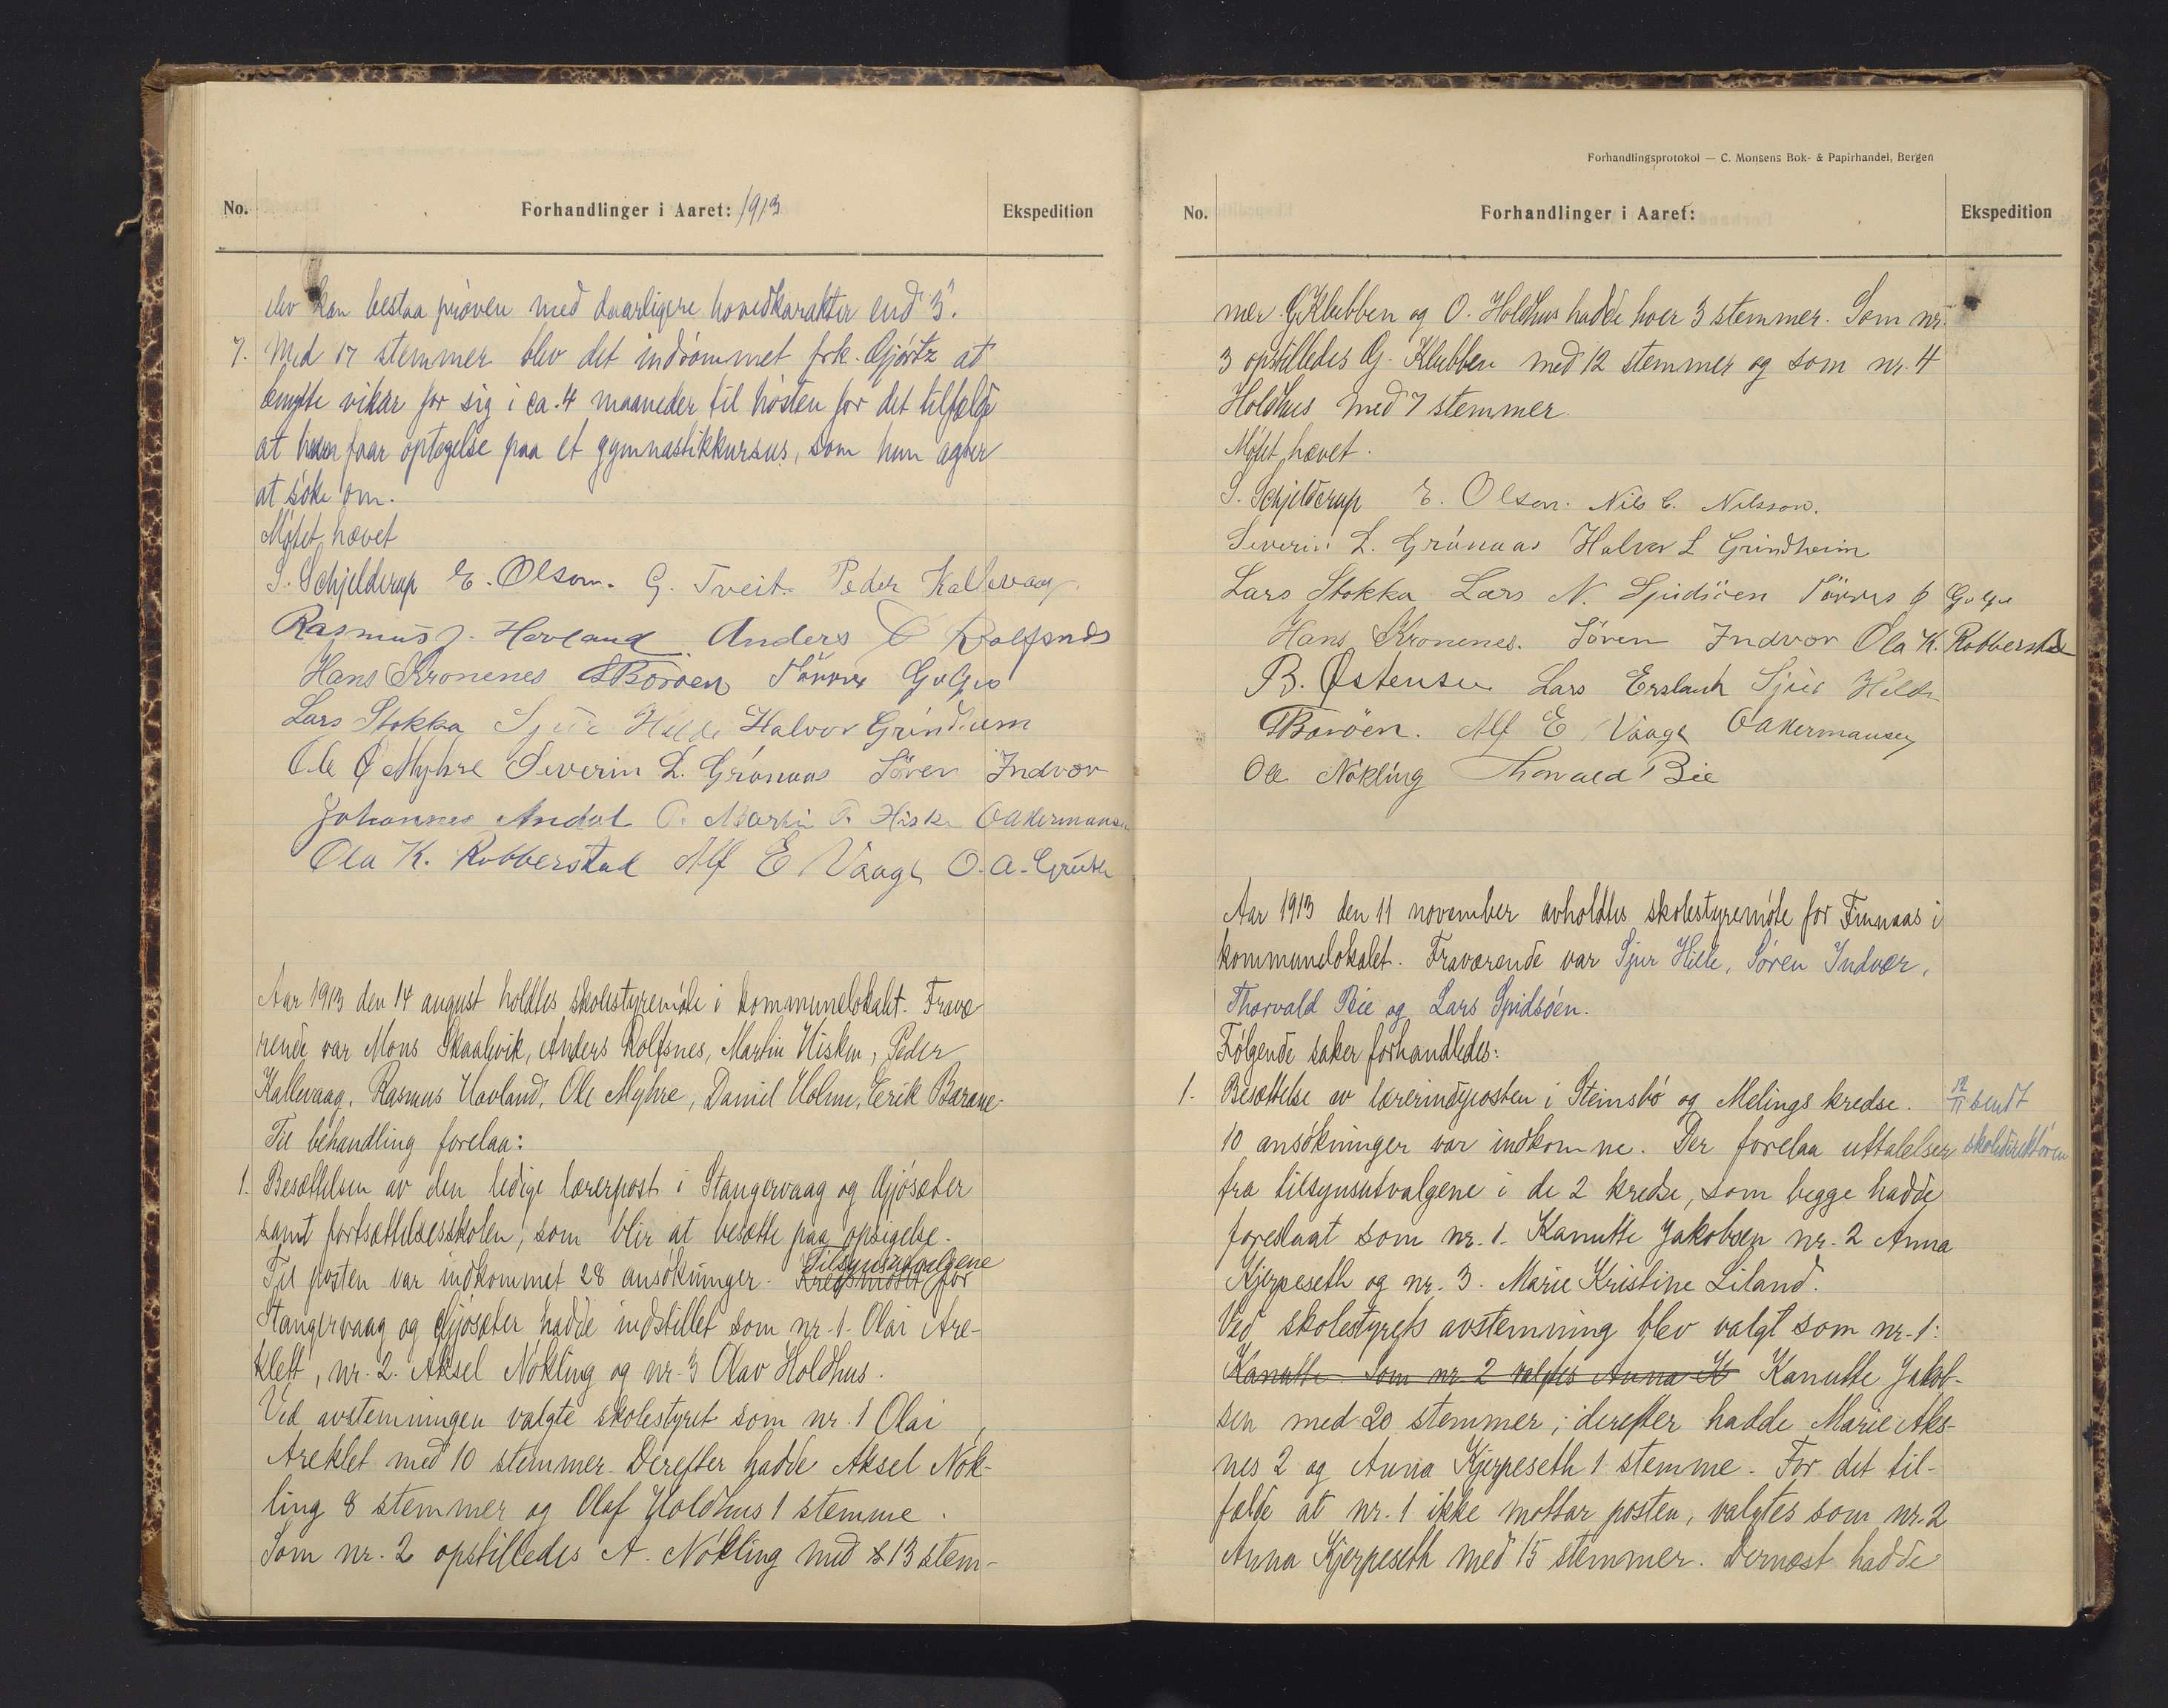 No.
Forhandlinger i Aaret: 1913
Ekspedition
elev kan bestaa prøven med daarligere hovedkarakter end "3".
7. Med 17 stemmer blev det indrømmet frk. Gjørtz at
benytte vikar for sig i ca. 4 maaneder til høsten for det tilfælde
at hun faar optagelse paa et gymnastikkursus, som hun agter
at søke om.
Møtet hævet
S. Schjelderup E. Olson. G. Tveit. Peder Kallevaag
Rasmus J. Hovland. Anders Rolfsnes
Hans Kronenes Børøen Tørres Gulgjo
Lars Stokka Sjur Hille Halvor Grindheim
Ole Ø Myhre Severin L. Grønaas Søren Indvær
Johannes Andal Martin T. Hisken O Akermansen
Ola K. Robberstad Alf E Vaage O. A.
Aar 1913 den 14 august holdtes skolestyremøte i kommunelokalet. Fravæ-
rende var Mons Skaalevik, Anders Rolfsnes, Martin Hisken, Peder
Kallevaag, Rasmus Hovland, Ole Myhre, Daniel Holme, Erik Barane.
Til behandling forelaa:
1. Besættelsen av den ledige lærerpost i Stangervaag og Gjøsæter
samt fortsættelsesskolen, som blir at besætte paa opsigelse.
Til posten var indkommet 28 ansøkninger. Kredsmøtet Tilsynsutvalgene for
Stangervaag og Gjøsæter hadde indstillet som nr. 1. Olai Are-
klett, nr. 2. Aksel Nøkling og nr. 3 Olav Holdhus.
Ved avstemningen valgte skolestyret som nr. 1 Olai
Areklet med 10 stemmer. Derefter hadde Aksel Nøk-
ling 8 stemmer og Olaf Holdhus 1 stemme.
Som nr. 2 opstilledes A. Nøkling med 13 stem-
Forhandlingsprotokol — C. Monsens Bok- & Papirhandel, Bergen
No.
Forhandlinger i Aaret:
Ekspedition
mer. G Klubben og O. Holdhus hadde hver 3 stemmer. Som nr.
3 opstilledes G. Klubben med 12 stemmer og som nr. 4
Holdhus med 7 stemmer.
Møtet hævet.
S. Schjelderup E. Olson. Nils C. Nilsson.
Severin L. Grønaas Halvor L Grindheim
Lars Stokka Lars N. Spidsøen Tørres Gulgjo
Hans Kronenes. Søren Indvær Ola K. Robberstad
B. Østensen Lars Ersland Sjur Hille
Børøen. Alf E Vaage O Akermansen
Ole Nøkling Thorvald Bie
Aar 1913 den 11 november avholdtes skolestyremøte for Finnaas i
kommunelokalet. Fraværende var Sjur Hille, Søren Indvær,
Thorvald Bie og Lars Spidsøen.
Følgende saker forhandledes:
1. Besættelse av lærerindeposten i Steinsbø og Melings kredse. 12/11 sendt
10 ansøkninger var indkomne. Der forelaa uttalelser skoledirektøren
fra tilsynsutvalgene i de 2 kredse, som begge hadde
foreslaat som nr. 1. Kanutte Jakobsen nr. 2 Anna
Kjerpeseth og nr. 3. Marie Kristine Liland.
Ved skolestyrets avstemning blev valgt som nr. 1:
Kanutte Som nr. 2 valgtes Anna K Kanutte Jakob-
sen med 20 stemmer; derefter hadde Marie Aks-
nes 2 og Anna Kjerpeseth 1 stemme. For det til-
fælde at nr. 1 ikke mottar posten, valgtes som nr. 2
Anna Kjerpeseth med 15 stemmer. Dernæst hadde